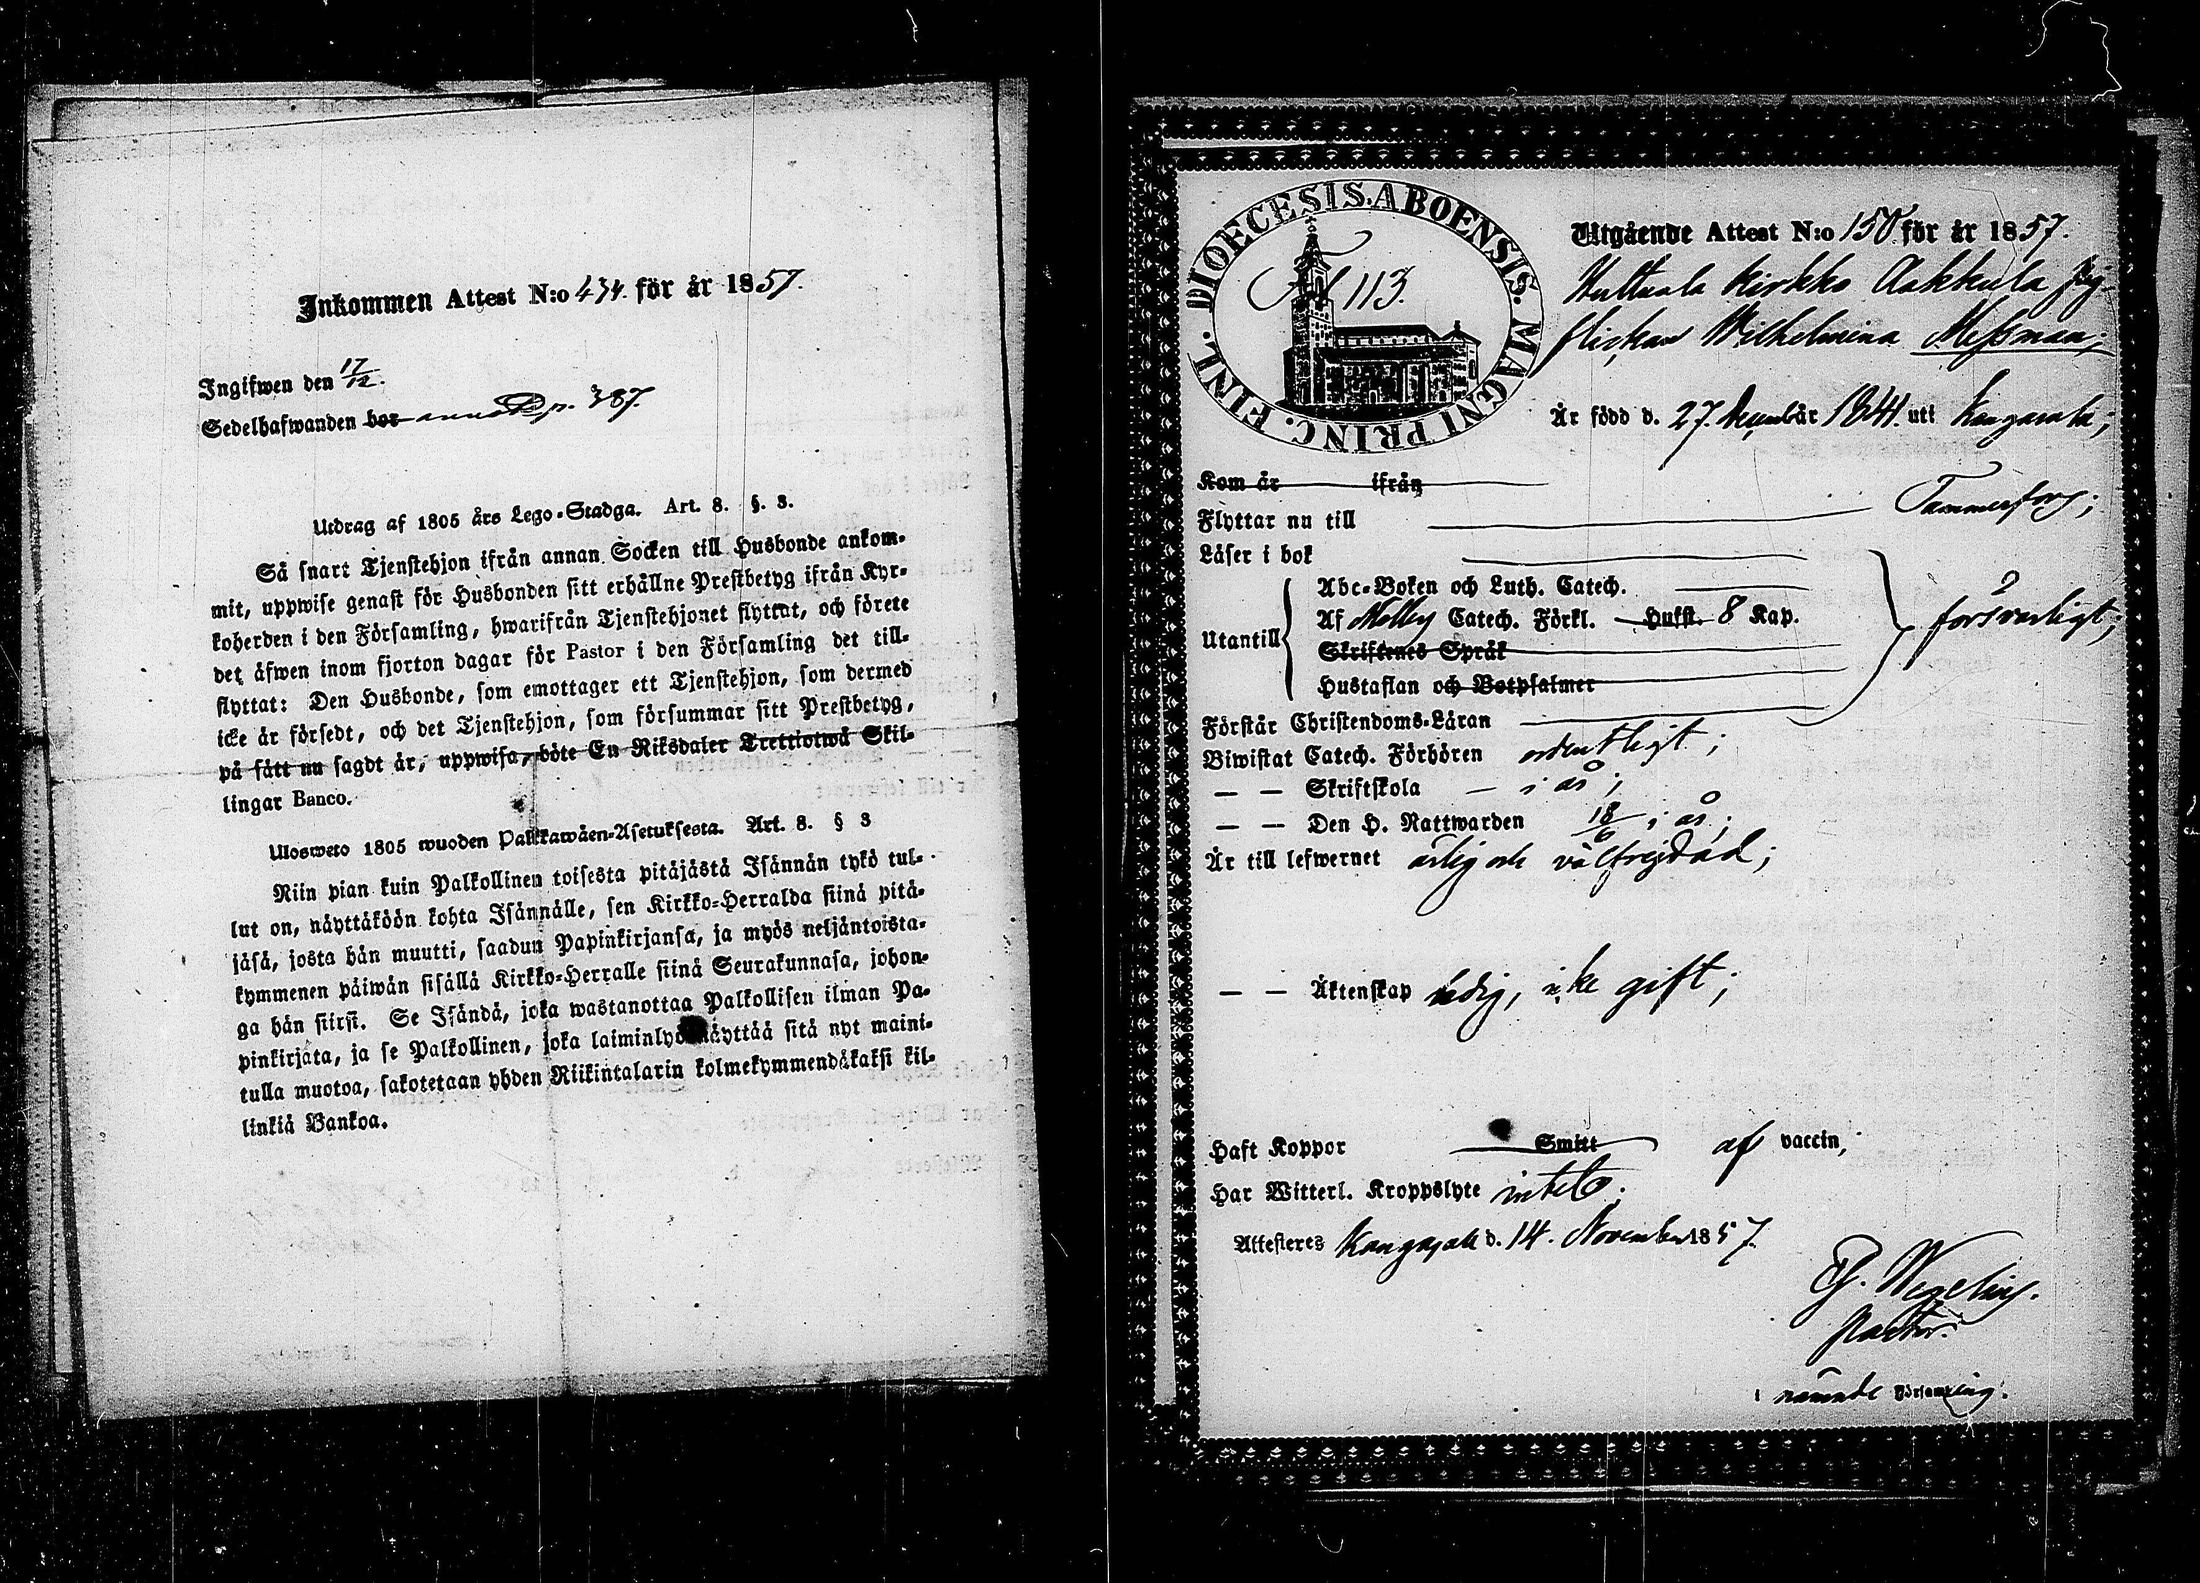 Inkommen Attest N:o 434. för år 1857.
Ingifwen den 17/12.
Sedelhafwanden bor p. 387.
Utdrag af 1805 års Lego-Stadga. Art. 8. §. 3.
Så snart Tjenstehjon ifrån annan Socken till Husbonde ankom-
mit, uppwise genast för Husbonden sitt erhållne Prestbetyg ifrån Kyr-
koherden i den Församling, hwarifrån Tjenstehjonet flyttat, och förete
det äfwen inom fjorton dagar för Pastor i den Församling det till-
flyttat: Den Husbonde, som emottager ett Tjenstehjon, som dermed
icke är försedt, och det Tjenstehjon, som försummar sitt Prestbetyg,
på sätt nu sagdt är, uppwisa, böte En Riksdaler Trettiotwå Skil-
lingar Banco.
Ulosweto 1805 wuoden Palkkawäen-Asetuksesta. Art. 8. § 3
Niin pian kuin Palkollinen toisesta pitäjästä Isännän tykö tul-
lut on, näyttäköön kohta Isännälle, sen Kirkko-Herralda siinä pitä-
jäsä, josta hän muutti, saadun Papinkirjansa, ja myös neljäntoista-
kymmenen päiwän sisällä Kirkko-Herralle siinä Seurakunnasa, johon-
ga hän siirsi. Se Isändä, joka wastanottaa Palkollisen ilman Pa-
pinkirjata, ja se Palkollinen, joka laiminlyö näyttää sitä nyt maini-
tulla muotoa, sakotetaan yhden Riikintalarin kolmekymmendäkaksi kil-
linkiä Bankoa.
DIOECESIS. ABOENSIS. MAGNI PRINC. FINL.
113.
Utgående Attest N:o 150 för år 1857.
Huttaala Kirkko Aakkula pig-
flickan Wilhelmina Messman;
Är född d. 27. December 1841. uti Kangasala;
Kom år ifrån
Flyttar nu till Tammerfors;
Läser i bok
Utantill
Abc-Boken och Luth. Catech.
Af Catech. Förkl. Hufst. 8 Kap.
Skriftenes Språk
Hustaflan och Botpsalmer
försvarligt;
Förstår Christendoms-Läran
Biwistat Catech. Förhören ordentligt;
— — Skriftskola — i år;
— — Den H. Nattwarden 18/6 i år;
Är till lefwernet ärlig och välfrejdad;
— — Äktenskap ledig, icke gift;
Haft Koppor Smitt af vaccin;
Har Witterl. Kroppslyte intet;
Attesteres Kangasala d. 14. November 1857.
Wegelius.
Pastor.
i nämnde Församling.